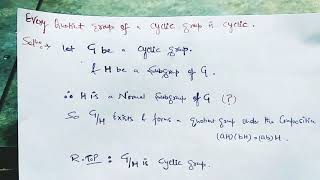 Every Quotient group of a cyclic group is cyclic.
Solution → Let G be a cyclic group.
& H be a Subgroup of G.
∴ H is a Normal Subgroup of G (?)
So G/H exists & forms a quotient group under the Composition
(aH)(bH) = (ab)H.
R.T.P : G/H is cyclic group.